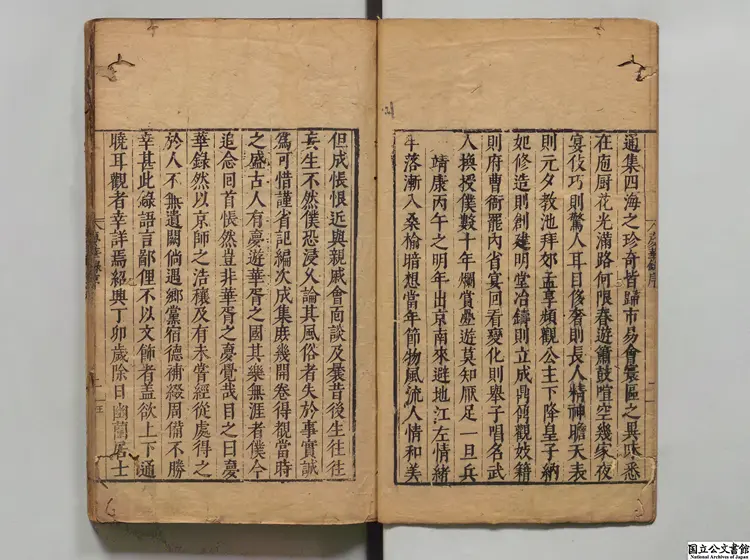 夢華錄序
通集四海之珍奇皆歸市易會寰區之異味悉
在庖厨花光滿路何限春遊簫鼓喧空幾家夜
宴伎巧則驚人耳目侈奢則長人精神瞻天表
則元夕教池拜郊孟享頻觀公主下降皇子納
妃修造則創建明堂冶鑄則立成鼎鼐觀妓籍
則府曹衙罷內省宴回看變化則舉子唱名武
人換授僕數十年爛賞疊遊莫知厭足一旦兵
靖康丙午之明年出京南來避地江左情緒
牢落漸入桑榆暗想當年節物風流人情和美
但成悵恨近與親戚會面談及曩昔後生往往
妄生不然僕恐浸久論其風俗者失於事實誠
爲可惜謹省記編次成集庶幾開卷得覩當時
之盛古人有夢遊華胥之國其樂無涯者僕今
追念回首悵然豈非華胥之夢覺哉目之曰夢
華錄然以京師之浩穰及有未嘗經從處得之
於人不無遺闕倘遇鄉黨宿德補綴周備不勝
幸甚此錄語言鄙俚不以文飾者蓋欲上下通
曉耳觀者幸詳焉紹興丁卯歲除日幽蘭居士
国立公文書館
National Archives of Japan